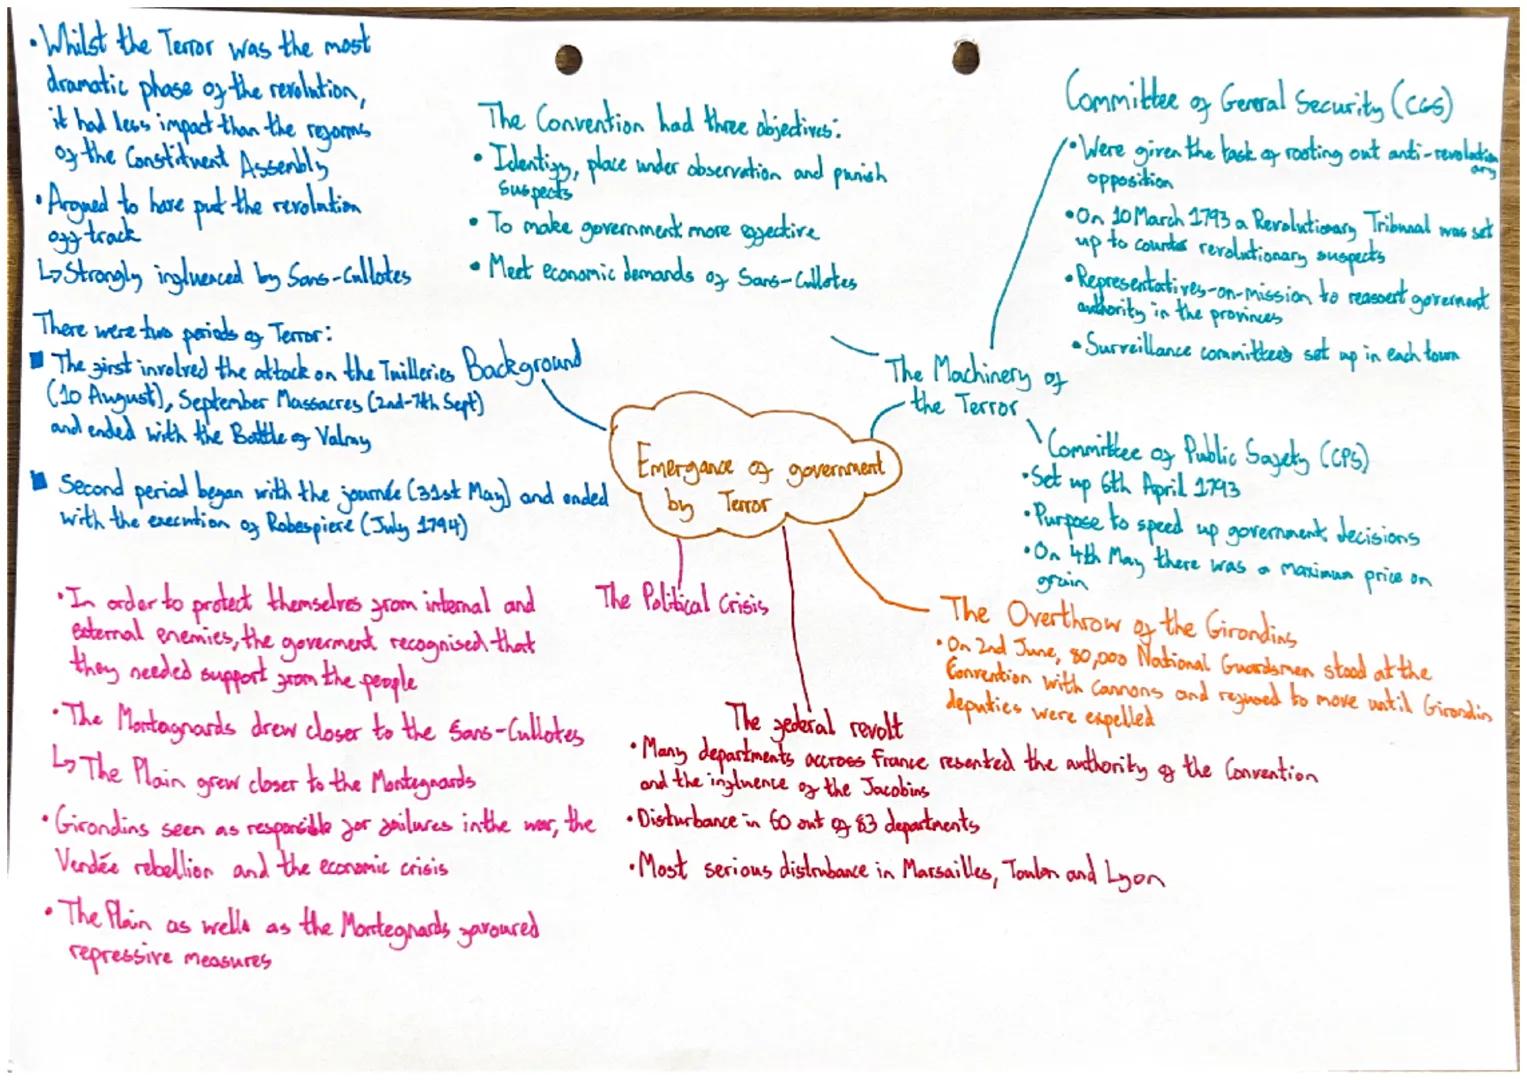 • Whilst the Terror was the most
dramatic phase of the revolution,
it had less impact than the reforms
of the Constituent Assembly
• Argued to have put the revolution
off track
↳ Strongly influenced by Sans-Cullotes
There were two periods of Terror:
■ The first involved the attack on the Tuilleries
(10 August), September Massacres (2nd-7th Sept)
and ended with the Battle of Valmy
■ Second period began with the journée (31st May) and ended
with the execution of Robespiere (July 1794)
Background
The Convention had three objectives:
• Identify, place under observation and punish
suspects
• To make government more effective
• Meet economic demands of Sans-Cullotes
Committee of General Security (CGS)
• Were given the task of rooting out anti-revolutionary
opposition
• On 10 March 1793 a Revolutionary Tribunal was set
up to counter revolutionary suspects
• Representatives-on-mission to reassert goverment
authority in the provinces
• Surveillance committees set up in each town
The Machinery of
the Terror
Committee of Public Safety (CPS)
• Set up 6th April 1793
• Purpose to speed up government decisions
• On 4th May there was a maximum price on
grain
Emergance of government
by Terror
The Political Crisis
• In order to protect themselves from internal and
external enemies, the goverment recognised that
they needed support from the people
• The Montagnards drew closer to the Sans-Cullotes
↳ The Plain grew closer to the Montegnards
• Girondins seen as responsible for failures in the war, the
Vendée rebellion and the economic crisis
• The Plain as wells as the Montegnards favoured
repressive measures
The Overthrow of the Girondins
• On 2nd June, 80,000 National Guardsmen stood at the
Convention with cannons and refused to move until Girondin
deputies were expelled
The federal revolt
• Many departments accross France resented the authority of the Convention
and the influence of the Jacobins
• Disturbance in 60 out of 83 departments
• Most serious distrubance in Marsailles, Toulon and Lyon